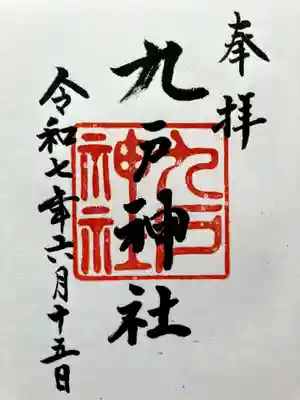 奉拝
九戸神社
九戸
神社
神社
令和七年六月十五日